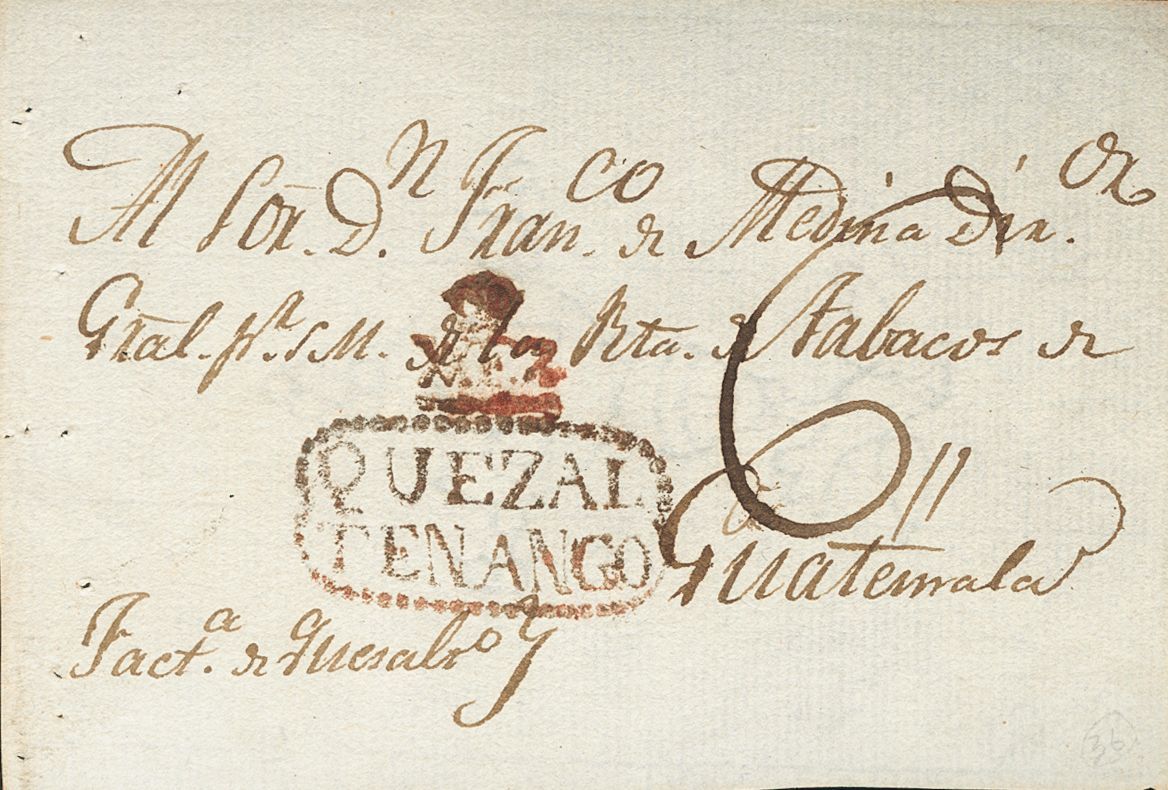 Al Sor. Dn. Franco. de Medina Diror.
Gral. pr. S M. de la Rta. de Tabacos de
QUEZAL
TENANGO
Guatemala
Facta. de Quesalto
36